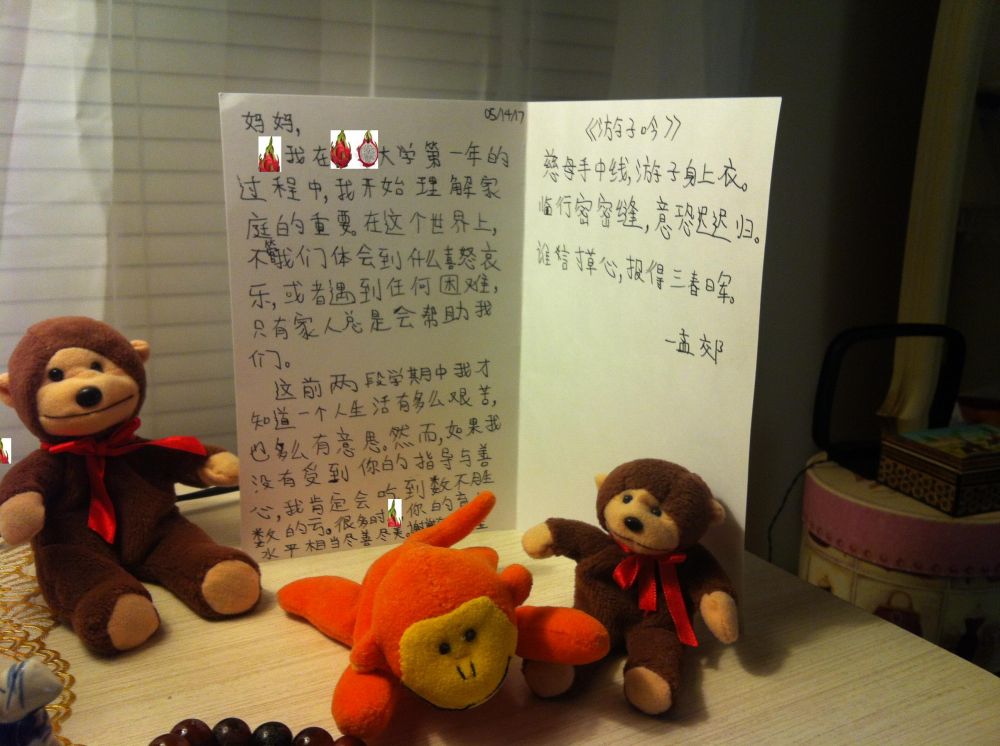 05/14/17
妈妈,
我在大学第一年的
过程中,我开始理解家
庭的重要。在这个世界上,
不管我们体会到什么喜怒哀
乐,或者遇到任何困难,
只有家人总是会帮助我
们。
这前两段学期中我才
知道一个人生活有多么艰苦,
也多么有意思。然而,如果我
没有受到你的指导与善
心,我肯定会吃到数不胜
数的亏。很多时你的
水平相当尽善尽美。谢谢
《游子吟》
慈母手中线,游子身上衣。
临行密密缝,意恐迟迟归。
谁信寸草心,报得三春日军。
-孟郊